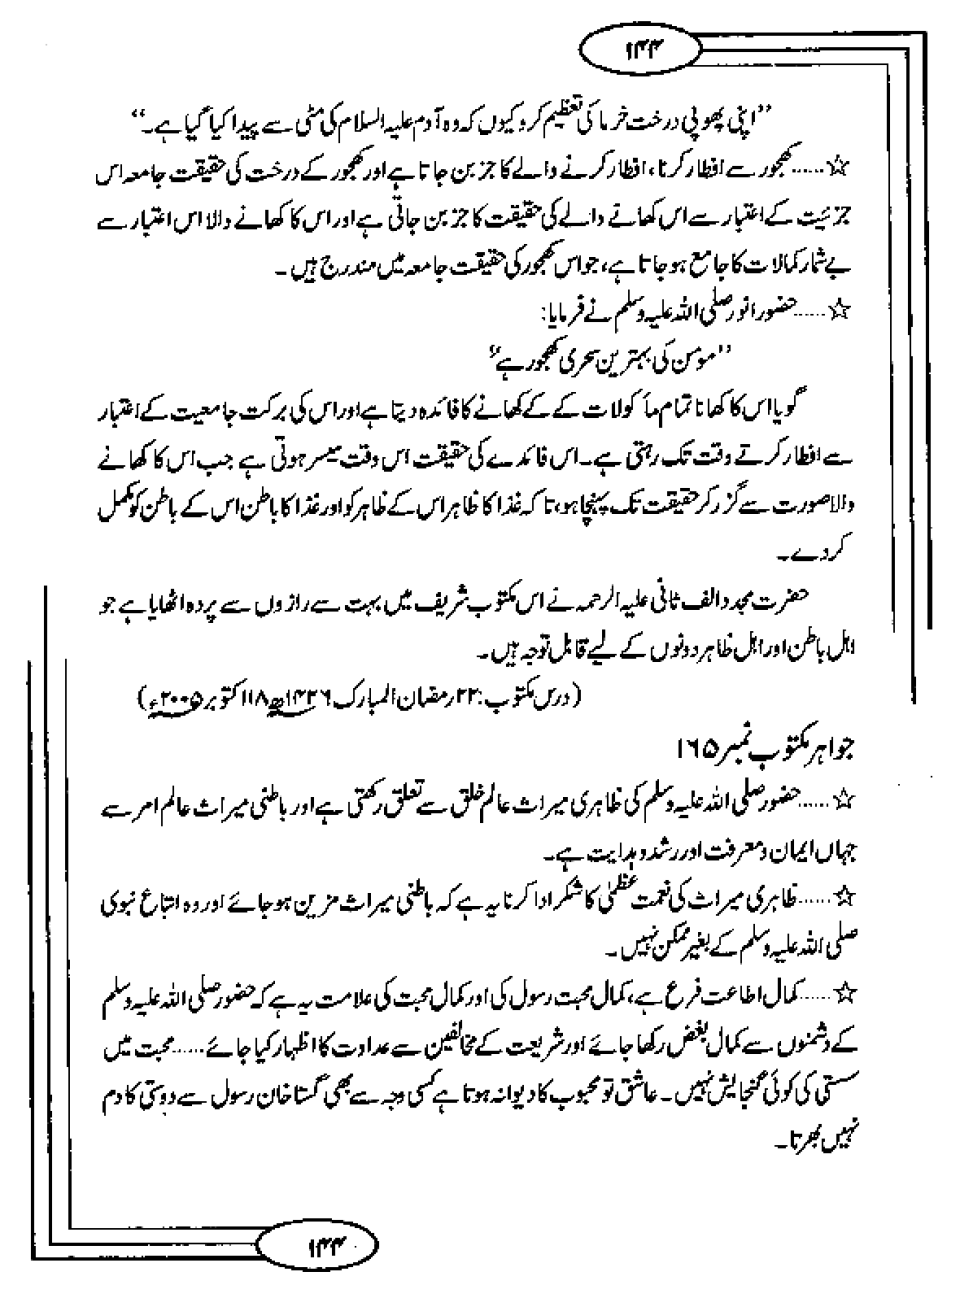 ۱۴۴
”اپنی پھوپی درخت خرما کی تعظیم کرو کیوں کہ وہ آدم علیہ السلام کی مٹی سے پیدا کیا گیا ہے۔“
☆......کھجور سے افطار کرنا، افطار کرنے والے کا جز بن جاتا ہے اور کھجور کے درخت کی حقیقت جامعہ اس
جزئیت کے اعتبار سے اس کھانے والے کی حقیقت کا جز بن جاتی ہے اور اس کا کھانے والا اس اعتبار سے
بے شمار کمالات کا جامع ہو جاتا ہے، جو اس کھجور کی حقیقت جامعہ میں مندرج ہیں ۔
☆......حضور انور صلی اللہ علیہ وسلم نے فرمایا:
”مومن کی بہترین سحری کھجور ہے“
گویا اس کا کھانا تمام مأکولات کے کے کھانے کا فائدہ دیتا ہے اور اس کی برکت جامعیت کے اعتبار
سے افطار کرتے وقت تک رہتی ہے۔ اس فائدے کی حقیقت اس وقت میسر ہوتی ہے جب اس کا کھانے
والا صورت سے گزر کر حقیقت تک پہنچا ہو، تا کہ غذا کا ظاہر اس کے ظاہر کو اور غذا کا باطن اس کے باطن کو مکمل
کر دے۔
حضرت مجدد الف ثانی علیہ الرحمہ نے اس مکتوب شریف میں بہت سے رازوں سے پردہ اٹھایا ہے جو
اہل باطن اور اہل ظاہر دونوں کے لیے قابل توجہ ہیں ۔
(درس مکتوب: ۲۲ رمضان المبارک ۱۴۲۶ھ ۱۱۸ کتوبر ۲۰۰۵ء)
جواہر مکتوب نمبر ۱۶۵
☆......حضور صلی اللہ علیہ وسلم کی ظاہری میراث عالم خلق سے تعلق رکھتی ہے اور باطنی میراث عالم امر سے
جہاں ایمان و معرفت اور رشد و ہدایت ہے۔
☆......ظاہری میراث کی نعمت عظمیٰ کا شکر ادا کرنا یہ ہے کہ باطنی میراث مزین ہو جائے اور وہ اتباع نبوی
صلی اللہ علیہ وسلم کے بغیر ممکن نہیں ۔
☆......کمال اطاعت فرع ہے، کمال محبت رسول کی اور کمال محبت کی علامت یہ ہے کہ حضور صلی اللہ علیہ وسلم
کے دشمنوں سے کمال بغض رکھا جائے اور شریعت کے مخالفین سے عداوت کا اظہار کیا جائے......محبت میں
سستی کی کوئی گنجایش نہیں۔ عاشق تو محبوب کا دیوانہ ہوتا ہے کسی وجہ سے بھی گستاخان رسول سے دوستی کا دم
نہیں بھرتا۔
۱۴۴